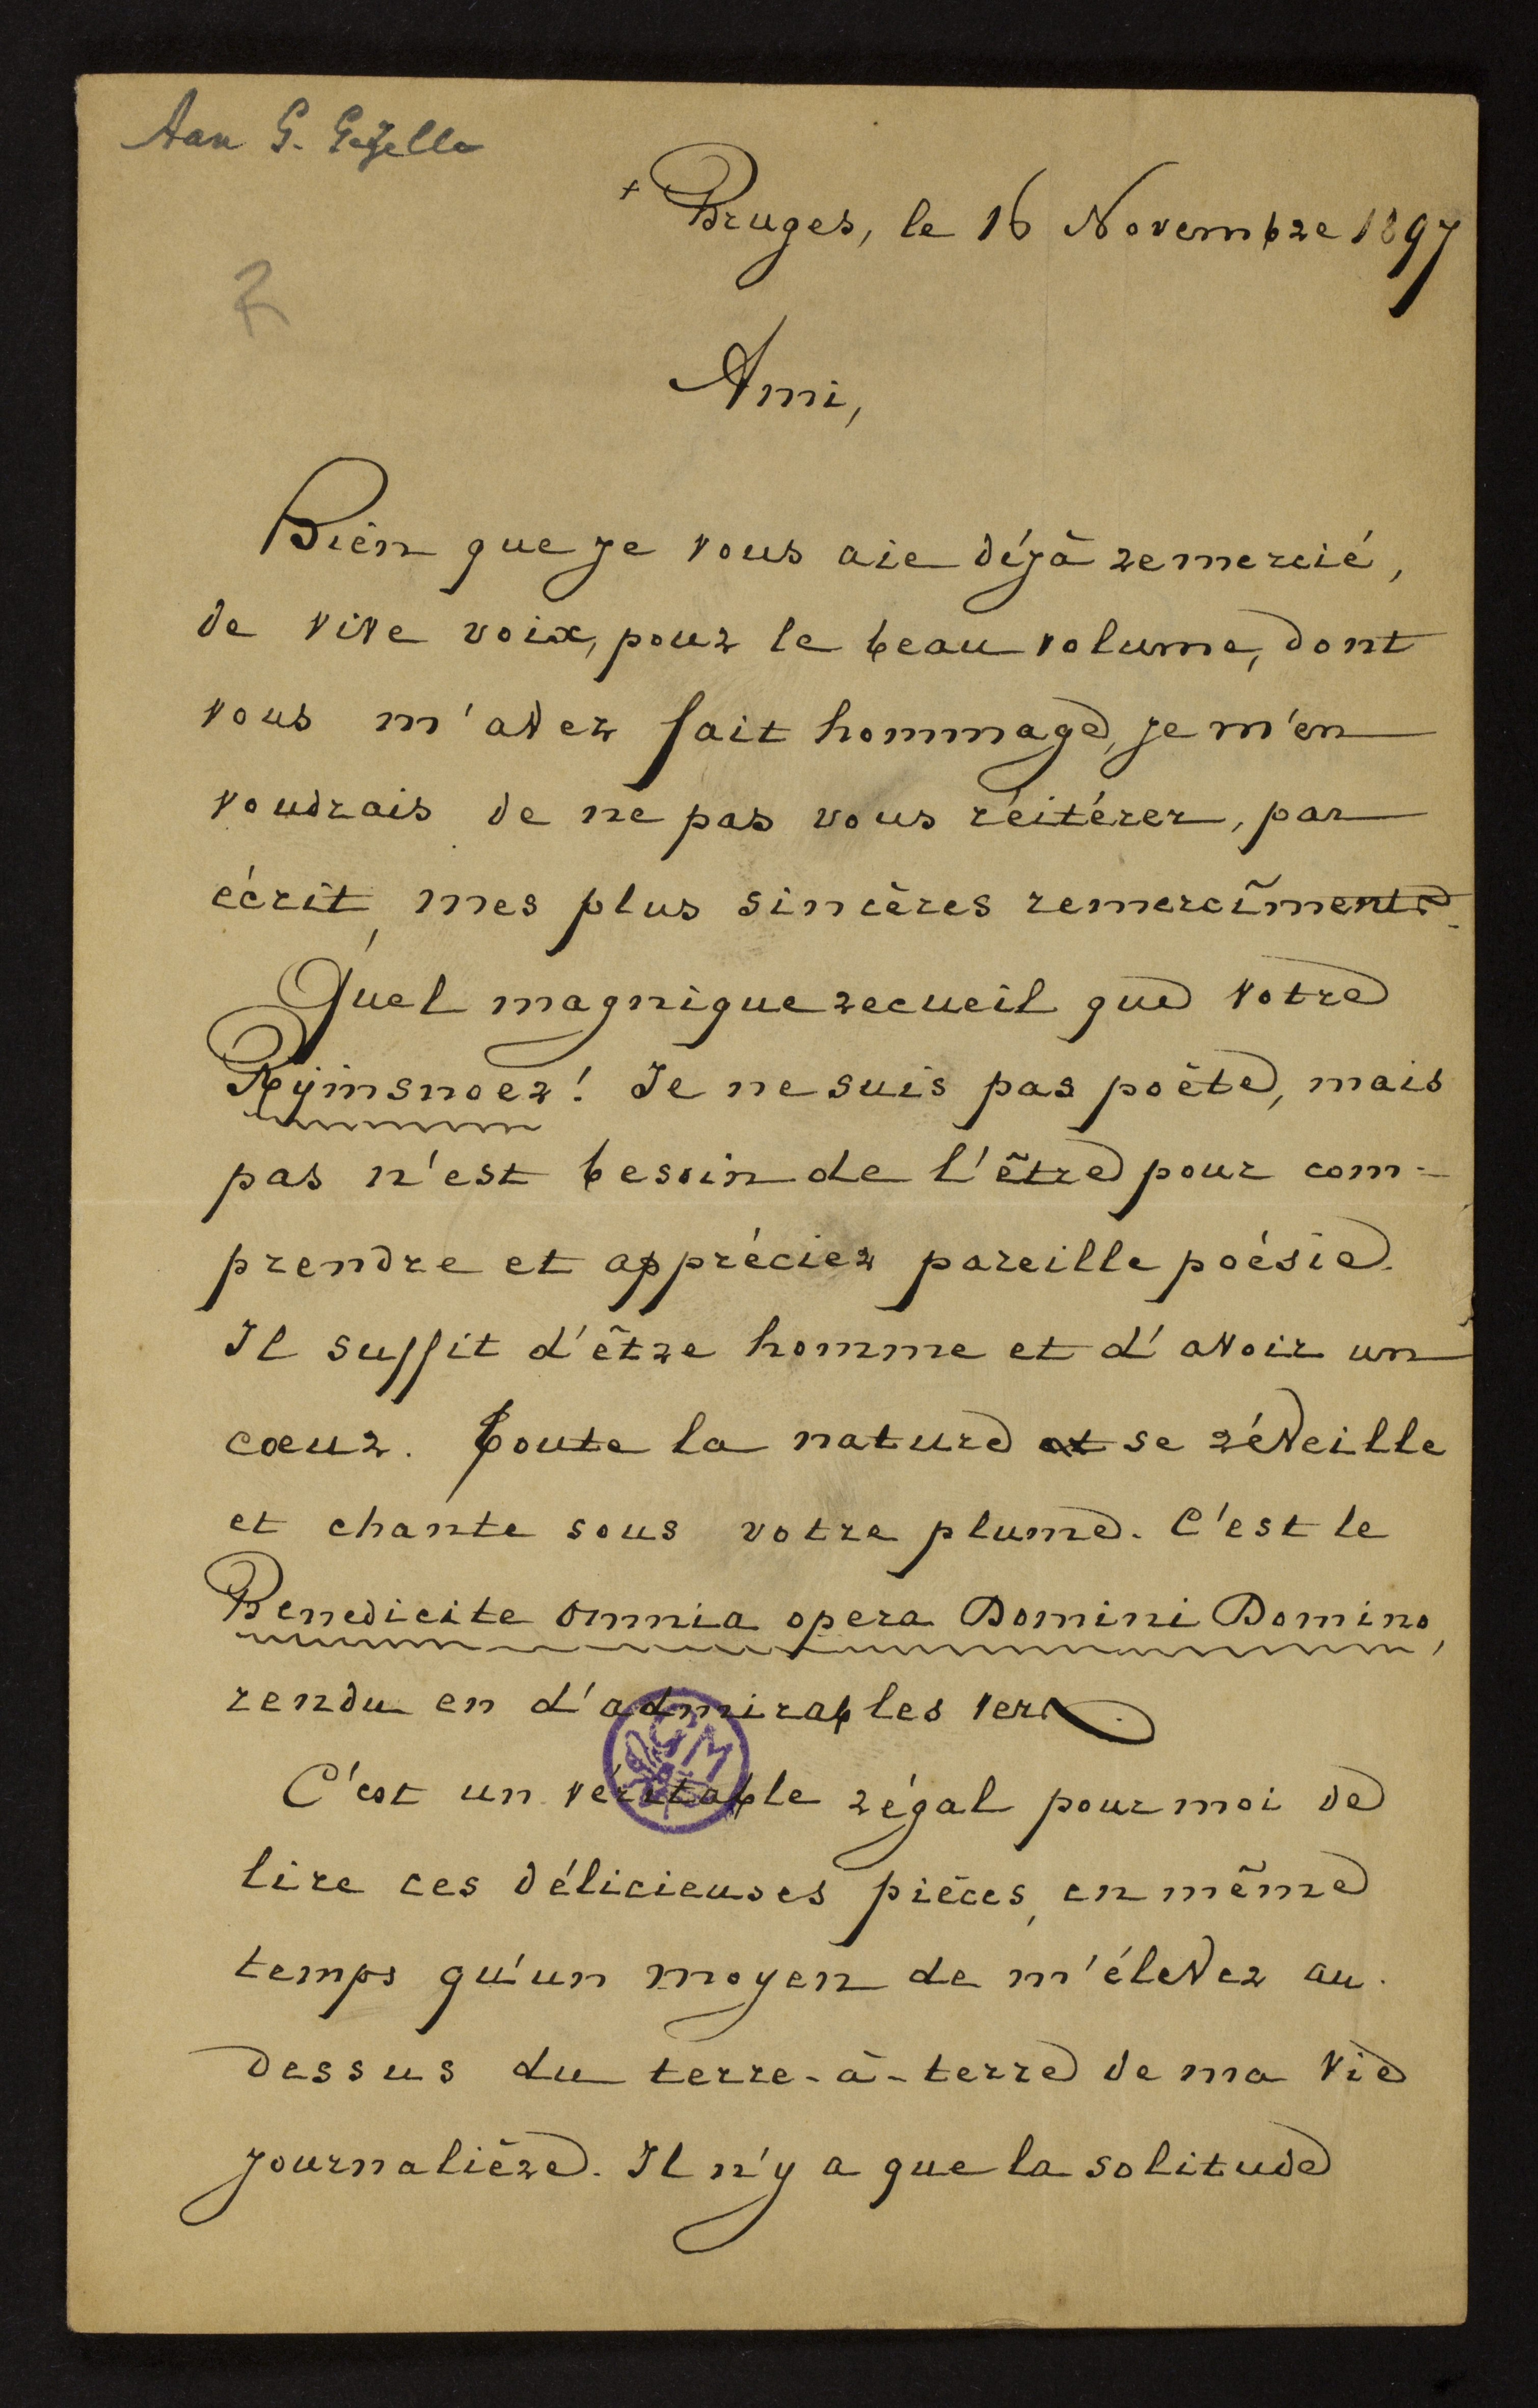 Aan G. Gezelle
+ Bruges, le 16 Novembre 1897
Ami,
Bien que je vous aie déjà remercié,
de vive voix, pour le beau volume, dont
vous m'avez fait hommage, je m'en
voudrais de ne pas vous réitérer, par
écrit, mes plus sincères remercîments.
Quel magnique recueil que votre
Rijmsnoer! Je ne suis pas poète, mais
pas n'est besoin de l'être pour com=
prendre et apprécier pareille poésie.
Il suffit d'être homme et d'avoir un
cœur. Toute la nature et se réveille
et chante sous votre plume. C'est le
Benedicite omnia opera Domini Domino,
rendu en d'admirables vers.
C'est un véritable régal pour moi de
lire ces délicieuses pièces, en même
temps qu'un moyen de m'élever au-
dessus du terre-à-terre de ma vie
journalière. Il n'y a que la solitude
GM